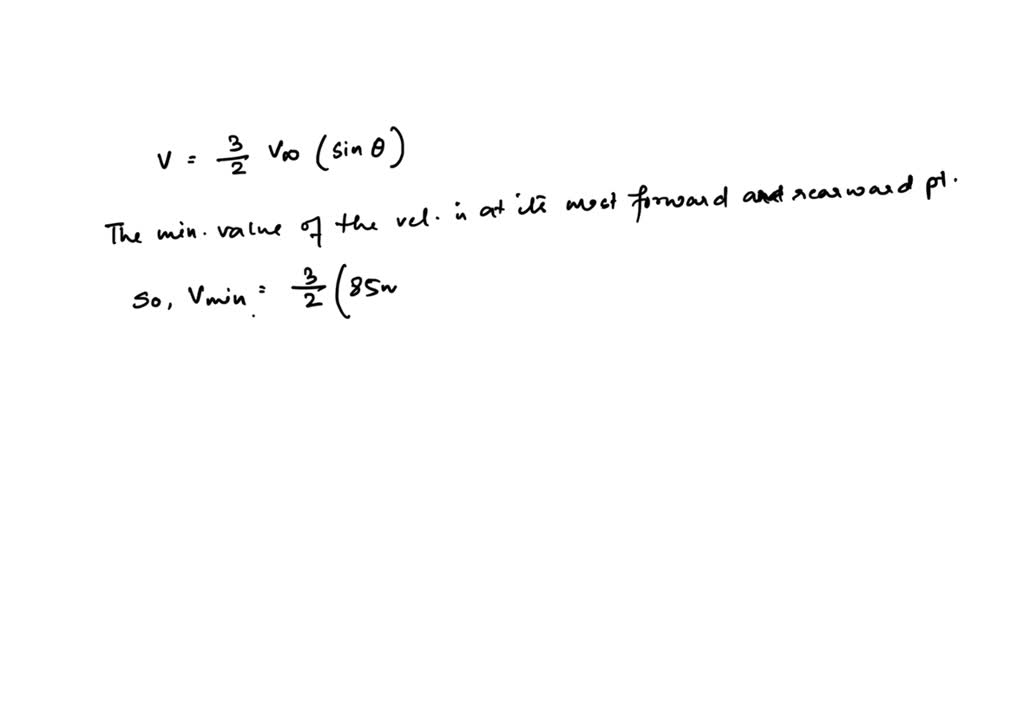 V = 3/2 V∞ (sin θ)
The min. value of the vel. is at its most forward and rearward pt.
So, Vmin = 3/2 (85m